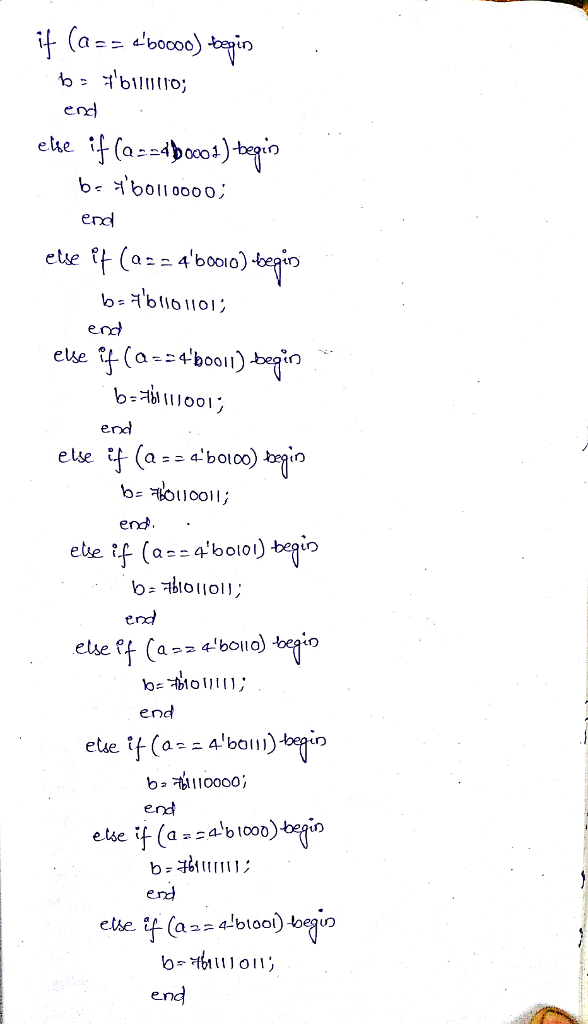 if (a == 4'b0000) begin
b = 7'b1111110;
end
else if (a==4b0001) begin
b= 7'b0110000;
end
else if (a == 4'b0010) begin
b=7'b1101101;
end
else if (a==4'b0011) begin
b=7b'1111001;
end
else if (a == 4'b0100) begin
b= 7b'0110011;
end.
else if (a==4'b0101) begin
b=7b'1011011;
end
else if (a == 4'b0110) begin
b= 7b'1011111;
end
else if (a == 4'b0111) begin
b= 7b'1110000;
end
else if (a ==4'b1000) begin
b= 7b'1111111;
end
else if (a==4'b1001) begin
b=7b'1111011;
end